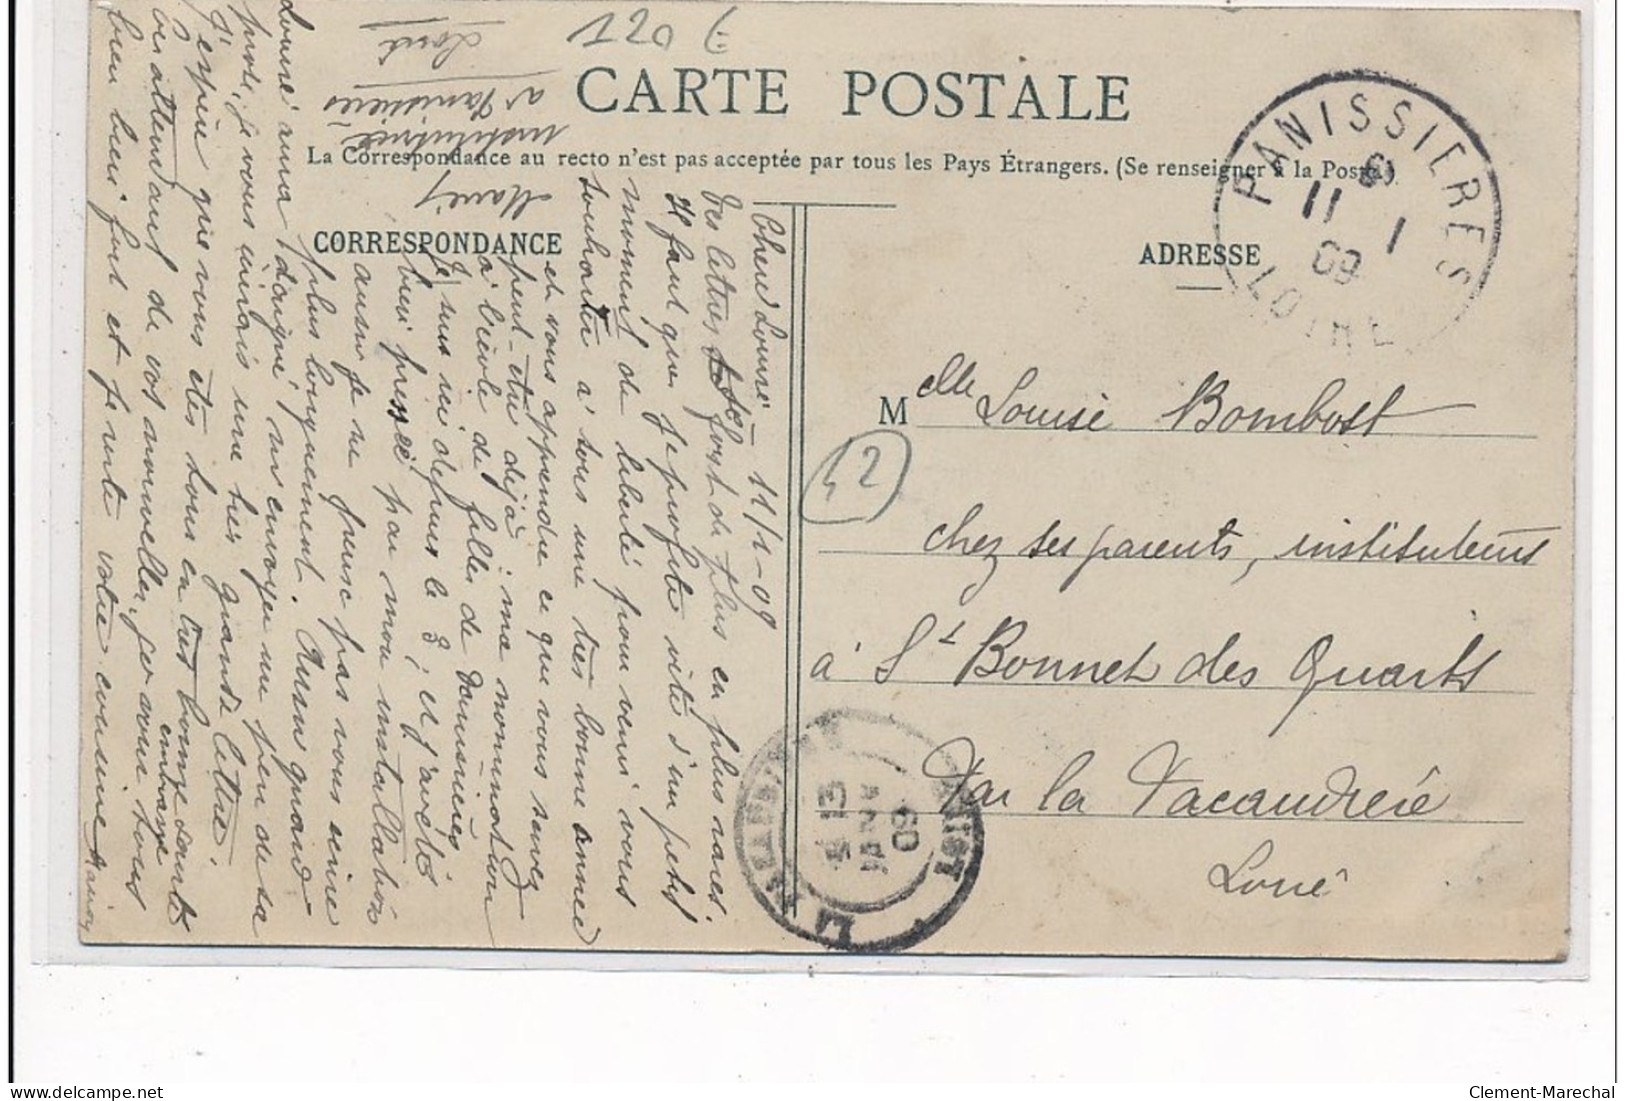 120 7
CARTE POSTALE
La Correspondance au recto n'est pas acceptée par tous les Pays Étrangers. (Se renseigner à la Poste).
CORRESPONDANCE
ADRESSE
PANISSIERES
11 1
09
LOIRE
Melle Louise Bombost
chez ses parents, instituteurs
à St Bonnet des Quarts
Par la Pacaudière
Loire
42
13
09
Chère Louise – 11/1-09
Des lettres se font de plus en plus rares.
Il faut que je profite vite d'un petit
moment de liberté pour venir vous
souhaiter à tous une très bonne année
et vous apprendre ce que vous savez
peut-être déjà : ma nomination
à l'école de filles de Panissières
J'y suis ici depuis le 3, et j'ai été
bien pressée par mon installation
aussi je ne puisse pas vous écrire
plus longuement. Quand
Louise aura daigné m'envoyer un peu de sa
prose, je vous écrirais une très grande lettre.
J'espère que vous êtes tous en très bonne santé
En attendant de vos nouvelles, je vous embrasse tous
bien bien fort et je reste votre cousine
Marie
institutrice
à Panissières
Loire
Clement-Marechal